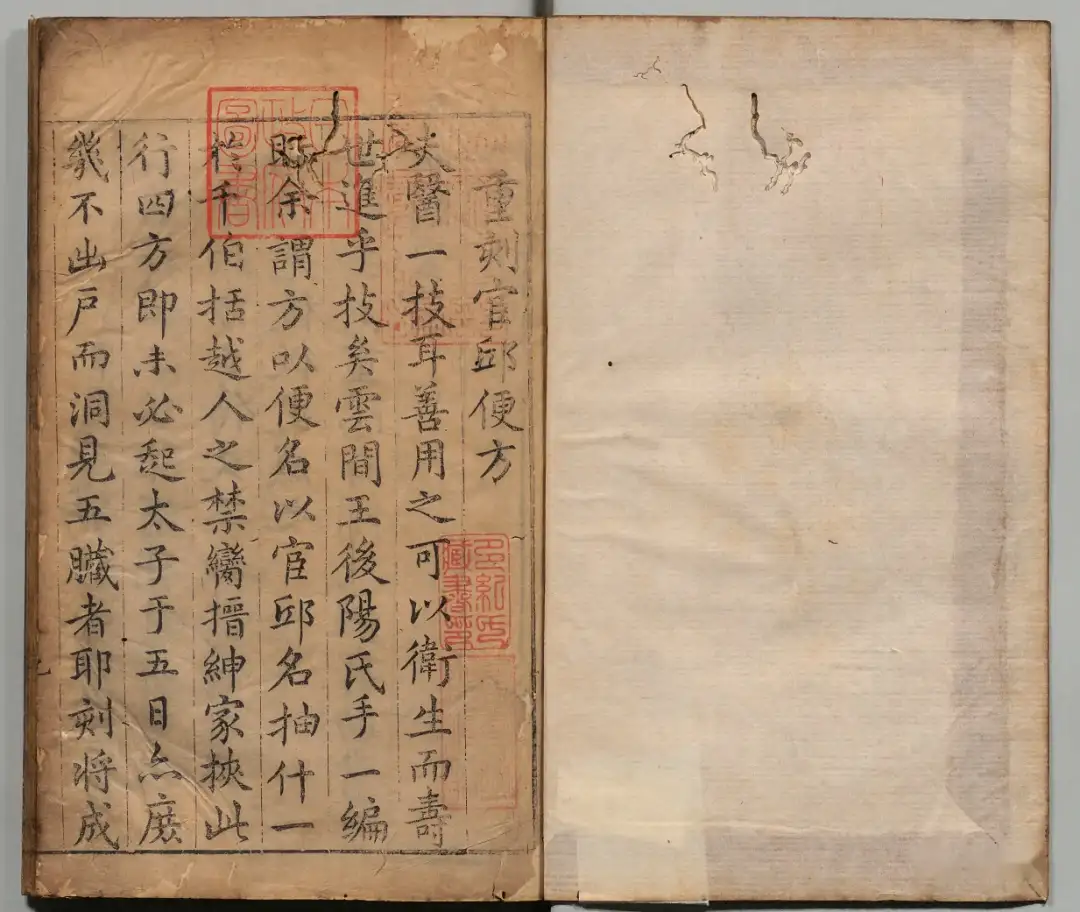 重刻宦邸便方
夫醫一技耳善用之可以衛生而壽
世進乎技矣雲間王後陽氏手一編
眎余謂方以便名以宦邸名抽什一
於千伯括越人之禁臠搢紳家挾此
行四方即未必起太子于五日亦庶
幾不出戶而洞見五臟者耶刻將成